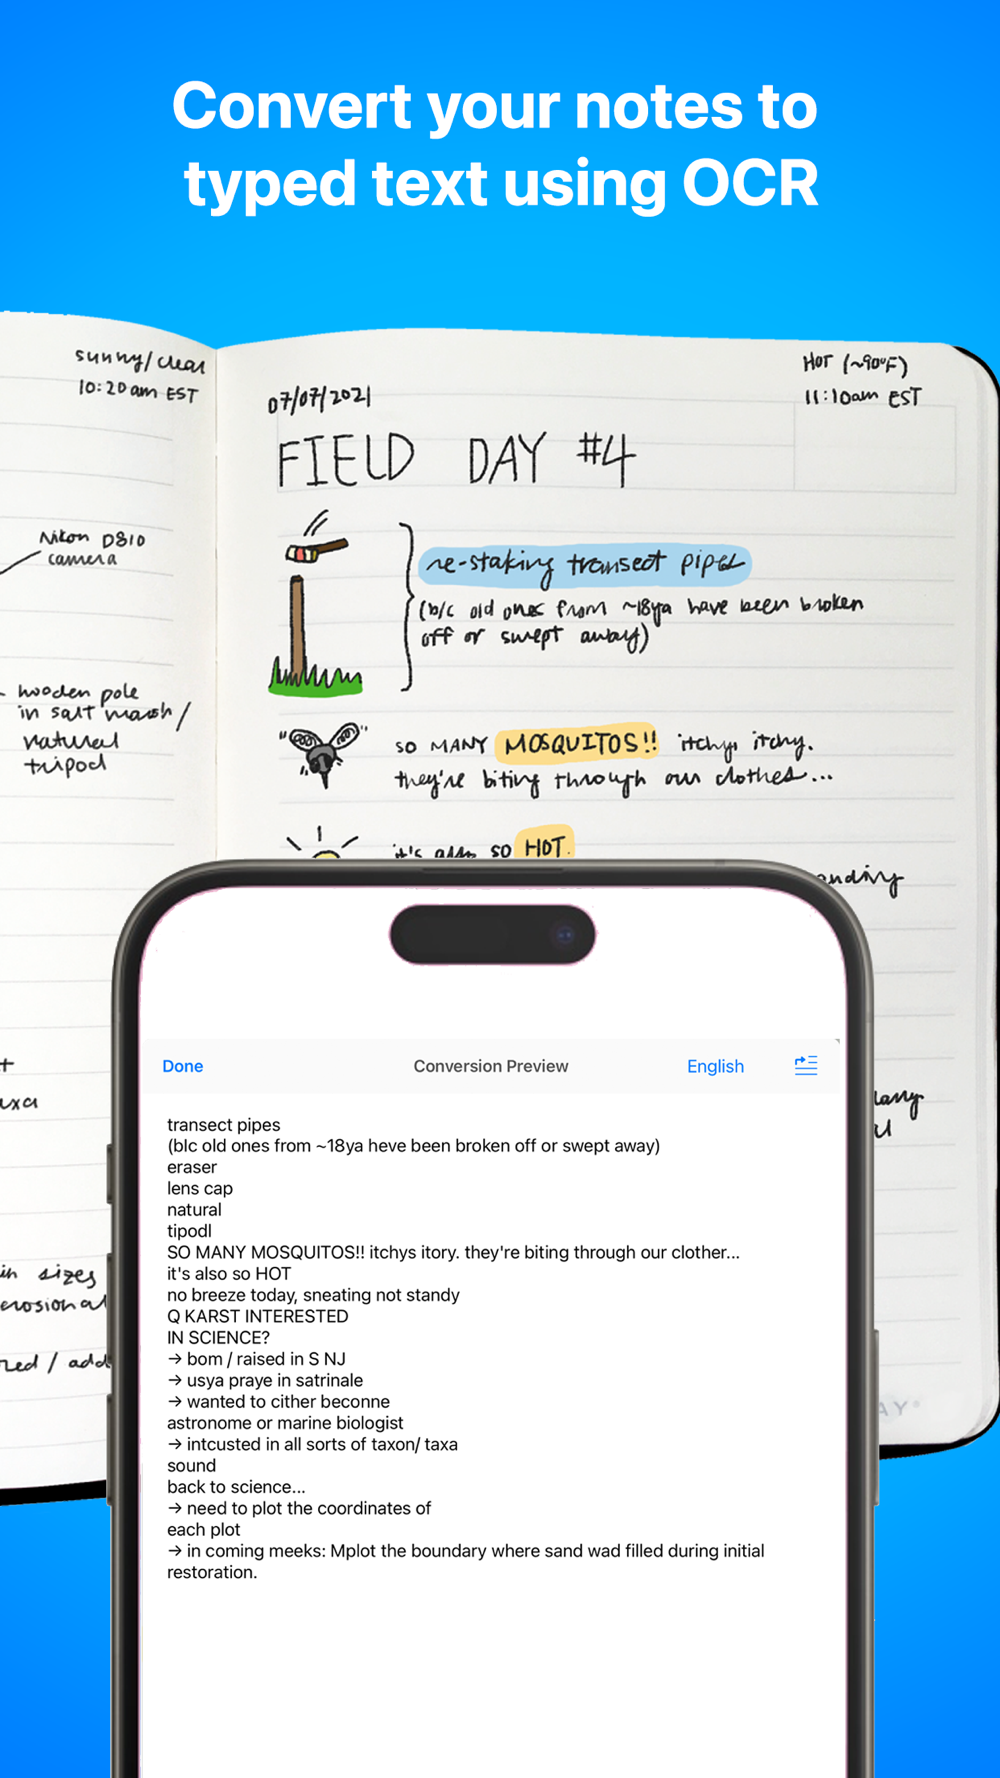 Convert your notes to
typed text using OCR
sunny/clear
10:20am EST
Nikon D810
camera
wooden pole
in salt marsh/
natural
tripod
in sizes
erosional
red / add
07/07/2021
HOT (~90°F)
11:10am EST
FIELD DAY #4
re-staking transect pipes
(b/c old ones from ~18ya have been broken
off or swept away)
SO MANY MOSQUITOS!! itchy, itchy.
they're biting through our clothes...
it's also SO HOT.
Done
Conversion Preview
English
transect pipes
(blc old ones from ~18ya heve been broken off or swept away)
eraser
lens cap
natural
tipodl
SO MANY MOSQUITOS!! itchys itory. they're biting through our clother...
it's also so HOT
no breeze today, sneating not standy
Q KARST INTERESTED
IN SCIENCE?
→ bom / raised in S NJ
→ usya praye in satrinale
→ wanted to cither beconne
astronome or marine biologist
→ intcusted in all sorts of taxon/ taxa
sound
back to science...
→ need to plot the coordinates of
each plot
→ in coming meeks: Mplot the boundary where sand wad filled during initial
restoration.